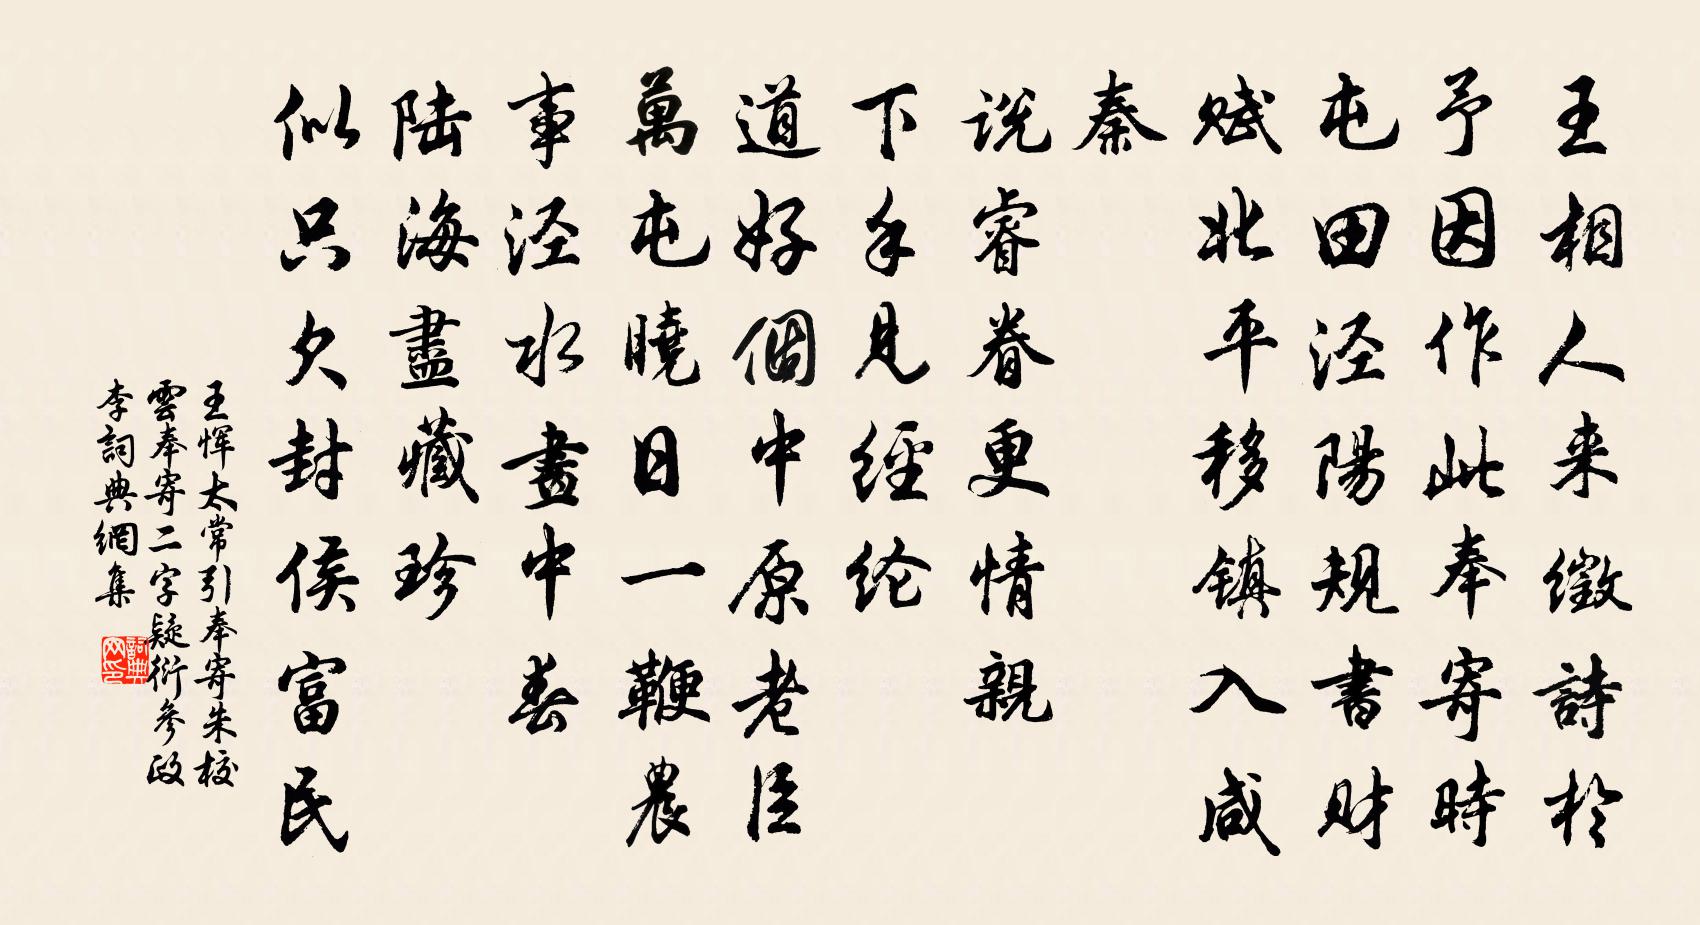 王相人来徵詩於
予因作此奉寄時
屯田泾陽規書财
赋北平移镇入咸
秦
说睿眷更情親
下手見經纶
道好個中原老臣
萬屯曉日一鞭農
事泾水畫中春
陆海盡藏珍
似只欠封侯富民
王恽太常引奉寄朱校
雲奉寄二字疑衍參政
李詞典網集
詞典网印